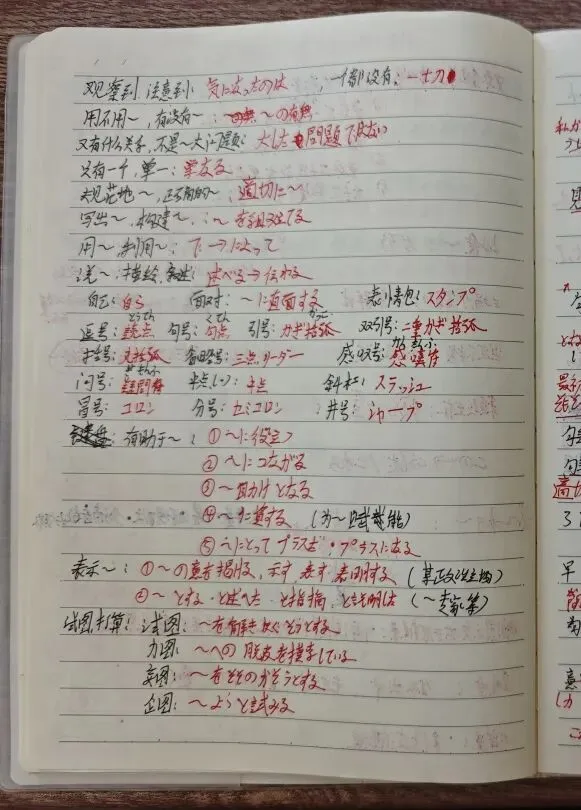 观察到,注意到: 気になったのは , 一个都没有: 一切
用不用~,有没有~: ~の有無
又有什么关系,不是~大问题: 大した問題ではない
只有一个,单一: 単なる
规范地~,正确的~: 適切に~
写出~,构建~: ~を組み立てる
用~,利用~: で→によって
说~,描绘,叙述: 述べる→伝わる
自己: 自ら 面对: ~に直面する 表情包: スタンプ
逗号: 読点 句号: 句点 引号: かぎ括弧 双引号: 二重かぎ括弧
括号: 丸括弧 省略号: 三点リーダー 感叹号: 感嘆符
问号: 疑問符 半点(-): 半点 斜杠: スラッシュ
冒号: コロン 分号: セミコロン 井号: シャープ
有助于~: ①~に役立つ
②~につながる
③~助けとなる
④~に資する (为~赋能)
⑤~にとってプラスだ・プラスになる
表示~: ①~の意を掲げる, 示す 表す 表明する (某政府主场)
②~とする・と述べた と指摘, と説明した (~专家等)
试图,打算: 试图: ~を解き ほぐそうとする
力图: ~への脱皮を模索している
妄图: ~をそそのかそうとする
企图: ~ようと試みる